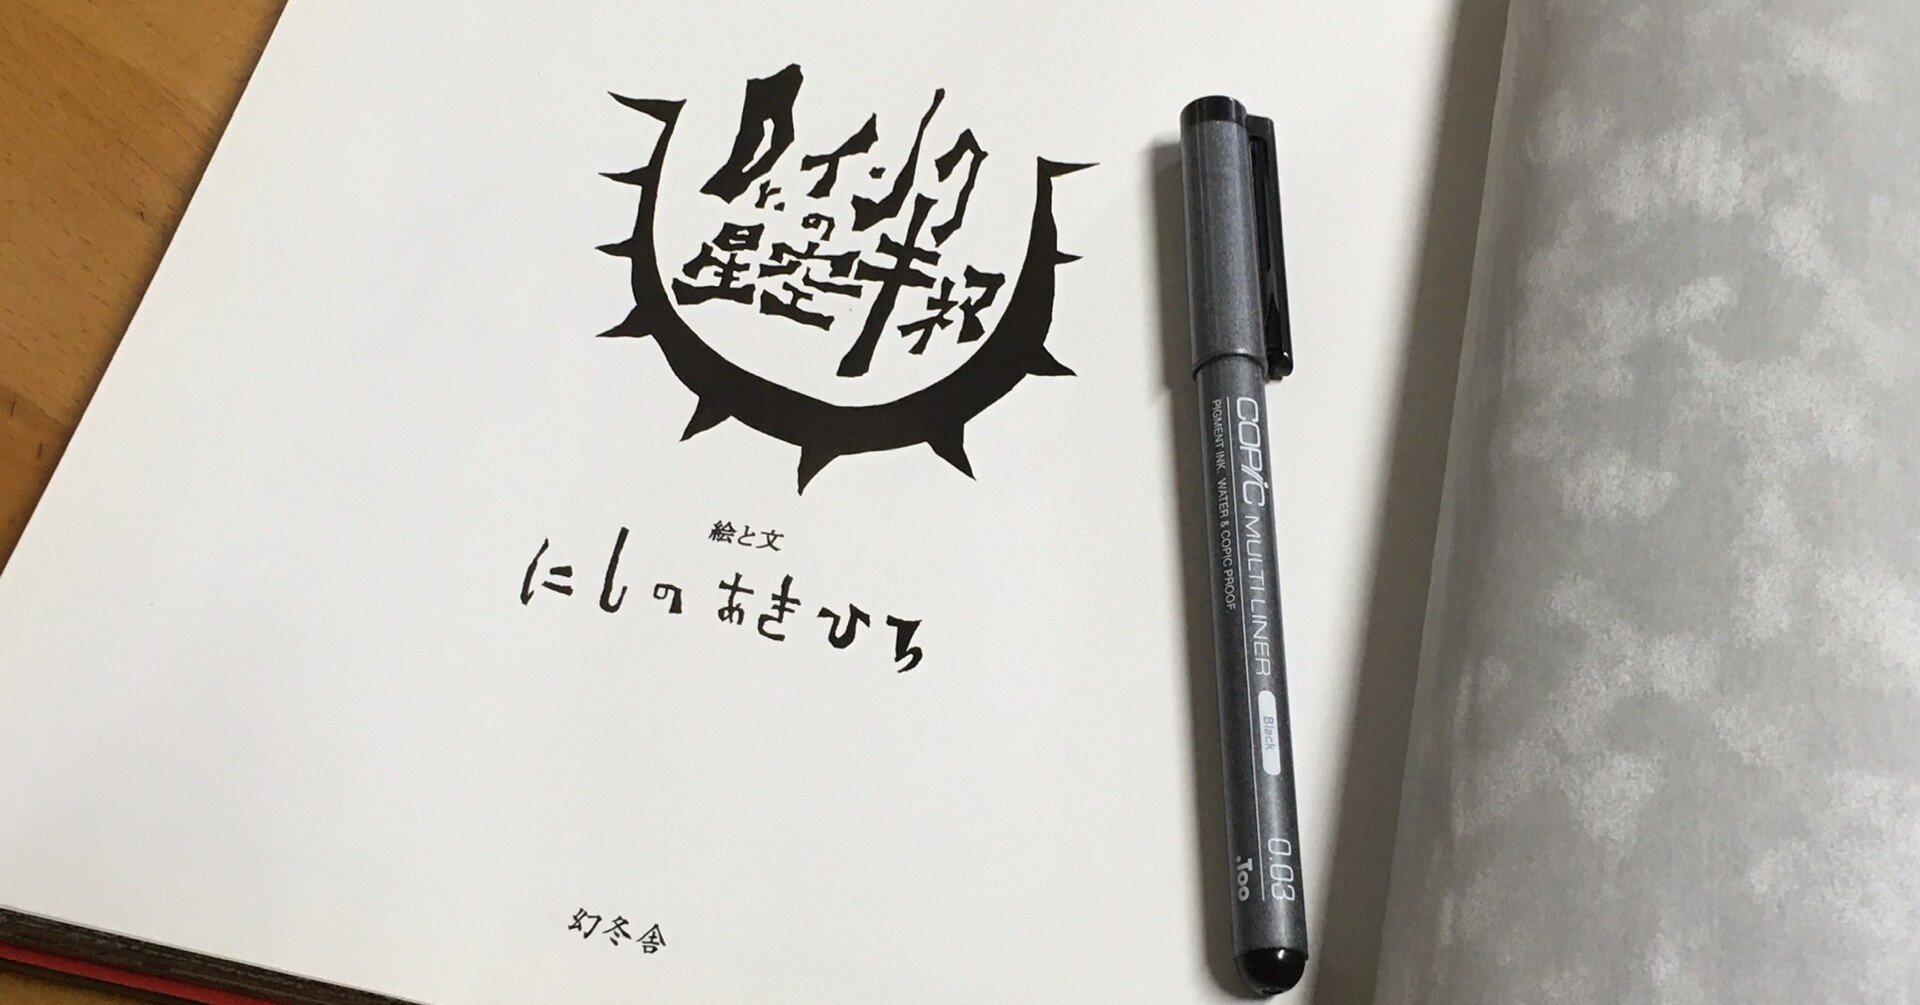 Dr.インクの
星空キネマ
絵と文
にしのあきひろ
幻冬舎
COPIC MULTI LINER Black 0.03
PIGMENT INK. WATER & COPIC PROOF. .Too